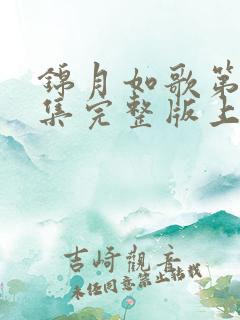 錦月如歌第
集完整版上
吉崎觀音
未经同意禁止转载